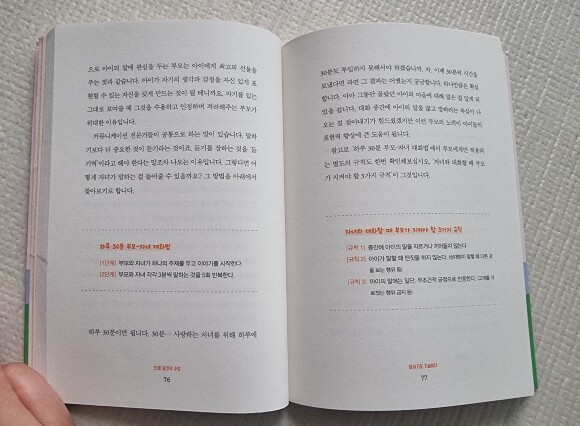 으로 아이의 말에 관심을 두는 부모는 아이에게 최고의 선물을
주는 것과 같습니다. 아이가 자기의 생각과 감정을 자신 있게 표
현할 수 있는 자신을 갖게 만드는 것이 될 테니까요. 자기를 있는
그대로 보여줄 때 그것을 수용하고 인정하며 격려해주는 부모가
위대한 이유입니다.
커뮤니케이션 전문가들이 공통으로 하는 말이 있습니다. 말하
기보다 더 중요한 것이 듣기라는 것이죠. 듣기를 잘하는 것을 '듣
기력'이라고 해야 한다는 말조차 나오는 이유입니다. 그렇다면 어
떻게 자녀가 말하는 걸 들어줄 수 있을까요? 그 방법을 아래에서
찾아보기로 합니다.
하루 30분 부모-자녀 대화법
[1단계] 부모와 자녀가 하나의 주제를 두고 이야기를 시작한다.
[2단계] 부모와 자녀 각각 3분씩 말하는 것을 5회 반복한다.
하루 30분이면 됩니다. 30분… 사랑하는 자녀를 위해 하루에
76
30분도 투입하지 못해서야 하겠습니까. 자, 이제 30분의 시간을
보냈다면 과연 그 결과는 어땠는지 궁금합니다. 하나만큼은 확실
합니다. 아마 그동안 몰랐던 아이의 마음에 대해 많은 걸 알게 되
었을 겁니다. 대화 중간에 아이의 말을 끊고 말하려는 욕심이 나
오는 걸 참아내기가 힘드셨겠지만 이런 부모의 노력이 아이들의
표현력 향상에 큰 도움이 됩니다.
참고로 '하루 30분 부모-자녀 대화법'에서 부모에게만 적용되
는 별도의 규칙도 한번 확인해보십시오. '자녀와 대화할 때 부모
가 지켜야 할 3가지 규칙'이 그것입니다.
자녀와 대화할 때 부모가 지켜야 할 3가지 규칙
[규칙 1] 중간에 아이의 말을 자르거나 끼어들지 않는다
[규칙 2] 아이가 말할 때 딴짓을 하지 않는다.
[규칙 3] 아이의 말에는 일단, 무조건적 긍정으로 반응한다.
77